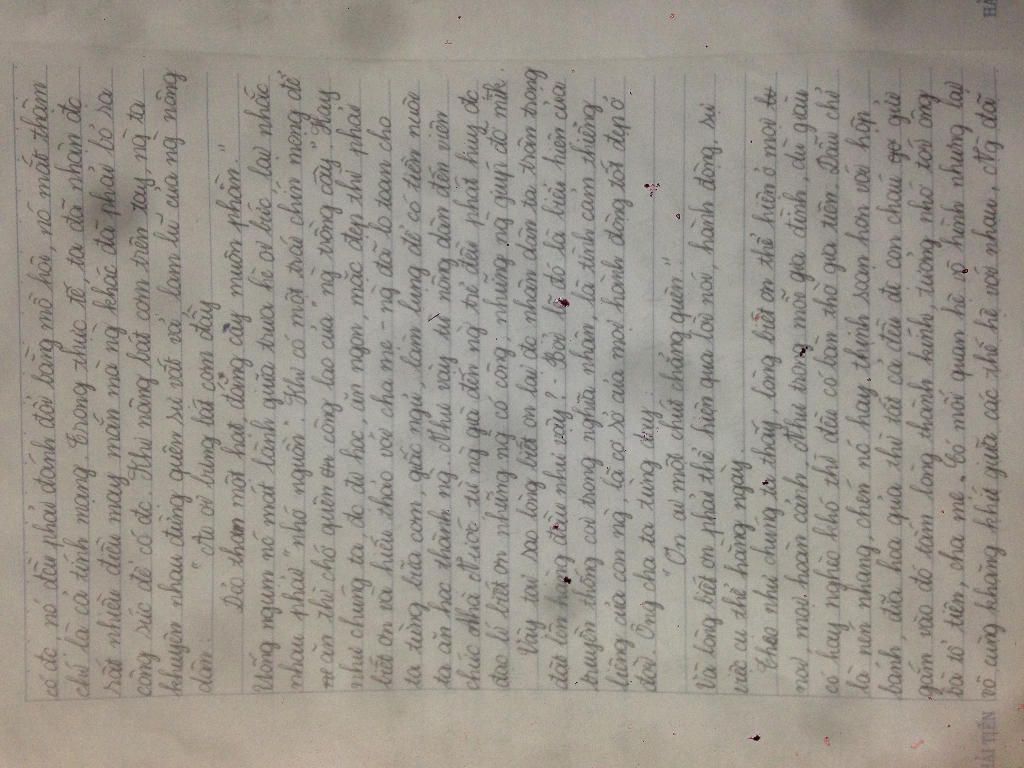 HẢI TIẾN
HẢ
có đc, nó đều phải đánh đổi bằng mồ hôi, nó mắt thậm
chí là cả tính mạng. Trong thực tế ta đã nhận đc
rất nhiều điều may mắn mà ng khác đã phải bỏ ra
công sức để có đc. Khi nâng bát cơm trên tay, ng ta
khuyên nhau đừng quên sự vất vả lam lũ của ng nông
dân
"Ai ơi bưng bát cơm đầy
Dẻo thơm một hạt đắng cay muôn phần."
Uống ngụm nó mát lành quả trưa hè oi bức lại nhắc
nhau phải "nhớ nguồn". Khi có một trái chín mọng để
ăn thì chớ quên công lao của "ng trồng cây". Hay
như chúng ta, đc đi học, ăn ngon, mặc đẹp thì phải
biết ơn và hiếu thảo với cha mẹ - ng đã lo toan cho
ta từng bữa cơm, giấc ngủ, làm lụng để có tiền nuôi
ta ăn học thành ng. Như vậy từ nông dân đến viên
chức Nhà Nước, từ ng già đến ng trẻ đều phát huy đc
đạo lí biết ơn những ng có công, những ng giúp đỡ mìh
Vậy tại sao lòng biết ơn lại đc nhân dân ta trân trọng
đặt lên hàng đầu như vậy? - Bởi lẽ đó là biểu hiện của
truyền thống coi trọng nghĩa nhân, là tình cảm thiêng
liêng của con ng, là cơ sở của mọi hành động tốt đẹp ở
đời. Ông cha ta từng dạy:
"Ơn ai một chút chẳng quên"
Và lòng biết ơn phải thể hiện qua lời nói, hành động, sự
việc cụ thể hàng ngày.
Theo như chúng ta thấy, lòng biết ơn thể hiện ở mọi
nơi, mọi hoàn cảnh. Như trong mỗi gia đình, dù giàu
có hay nghèo khó thì đều có bàn thờ gia tiên. Dẫu chỉ
là nén nhang, chén nó hay thịnh soạn hơn với hộp
bánh, đĩa hoa quả thì tất cả đều đc con cháu gửi
gắm vào đó tấm lòng thành kính, tưởng nhớ tới ông
bà tổ tiên, cha mẹ. Có mối quan hệ vô hình nhưng lại
vô cùng khăng khít giữa các thế hệ với nhau. Ng đã